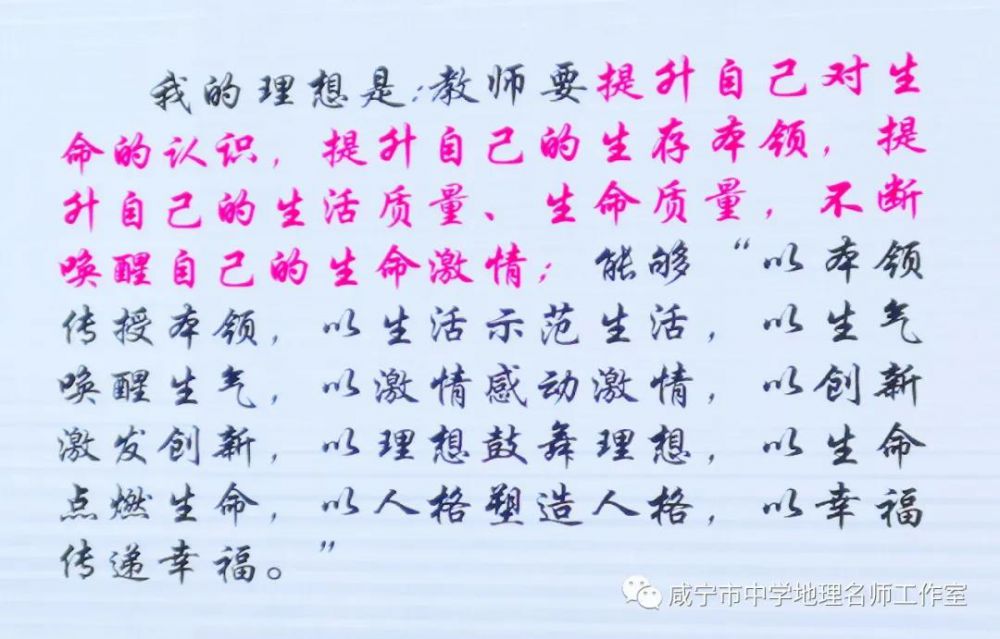 我的理想是:教师要提升自己对生
命的认识，提升自己的生存本领，提
升自己的生活质量、生命质量，不断
唤醒自己的生命激情；能够“以本领
传授本领，以生活示范生活，以生气
唤醒生气，以激情感动激情，以创新
激发创新，以理想鼓舞理想，以生命
点燃生命，以人格塑造人格，以幸福
传递幸福。”
咸宁市中学地理名师工作室